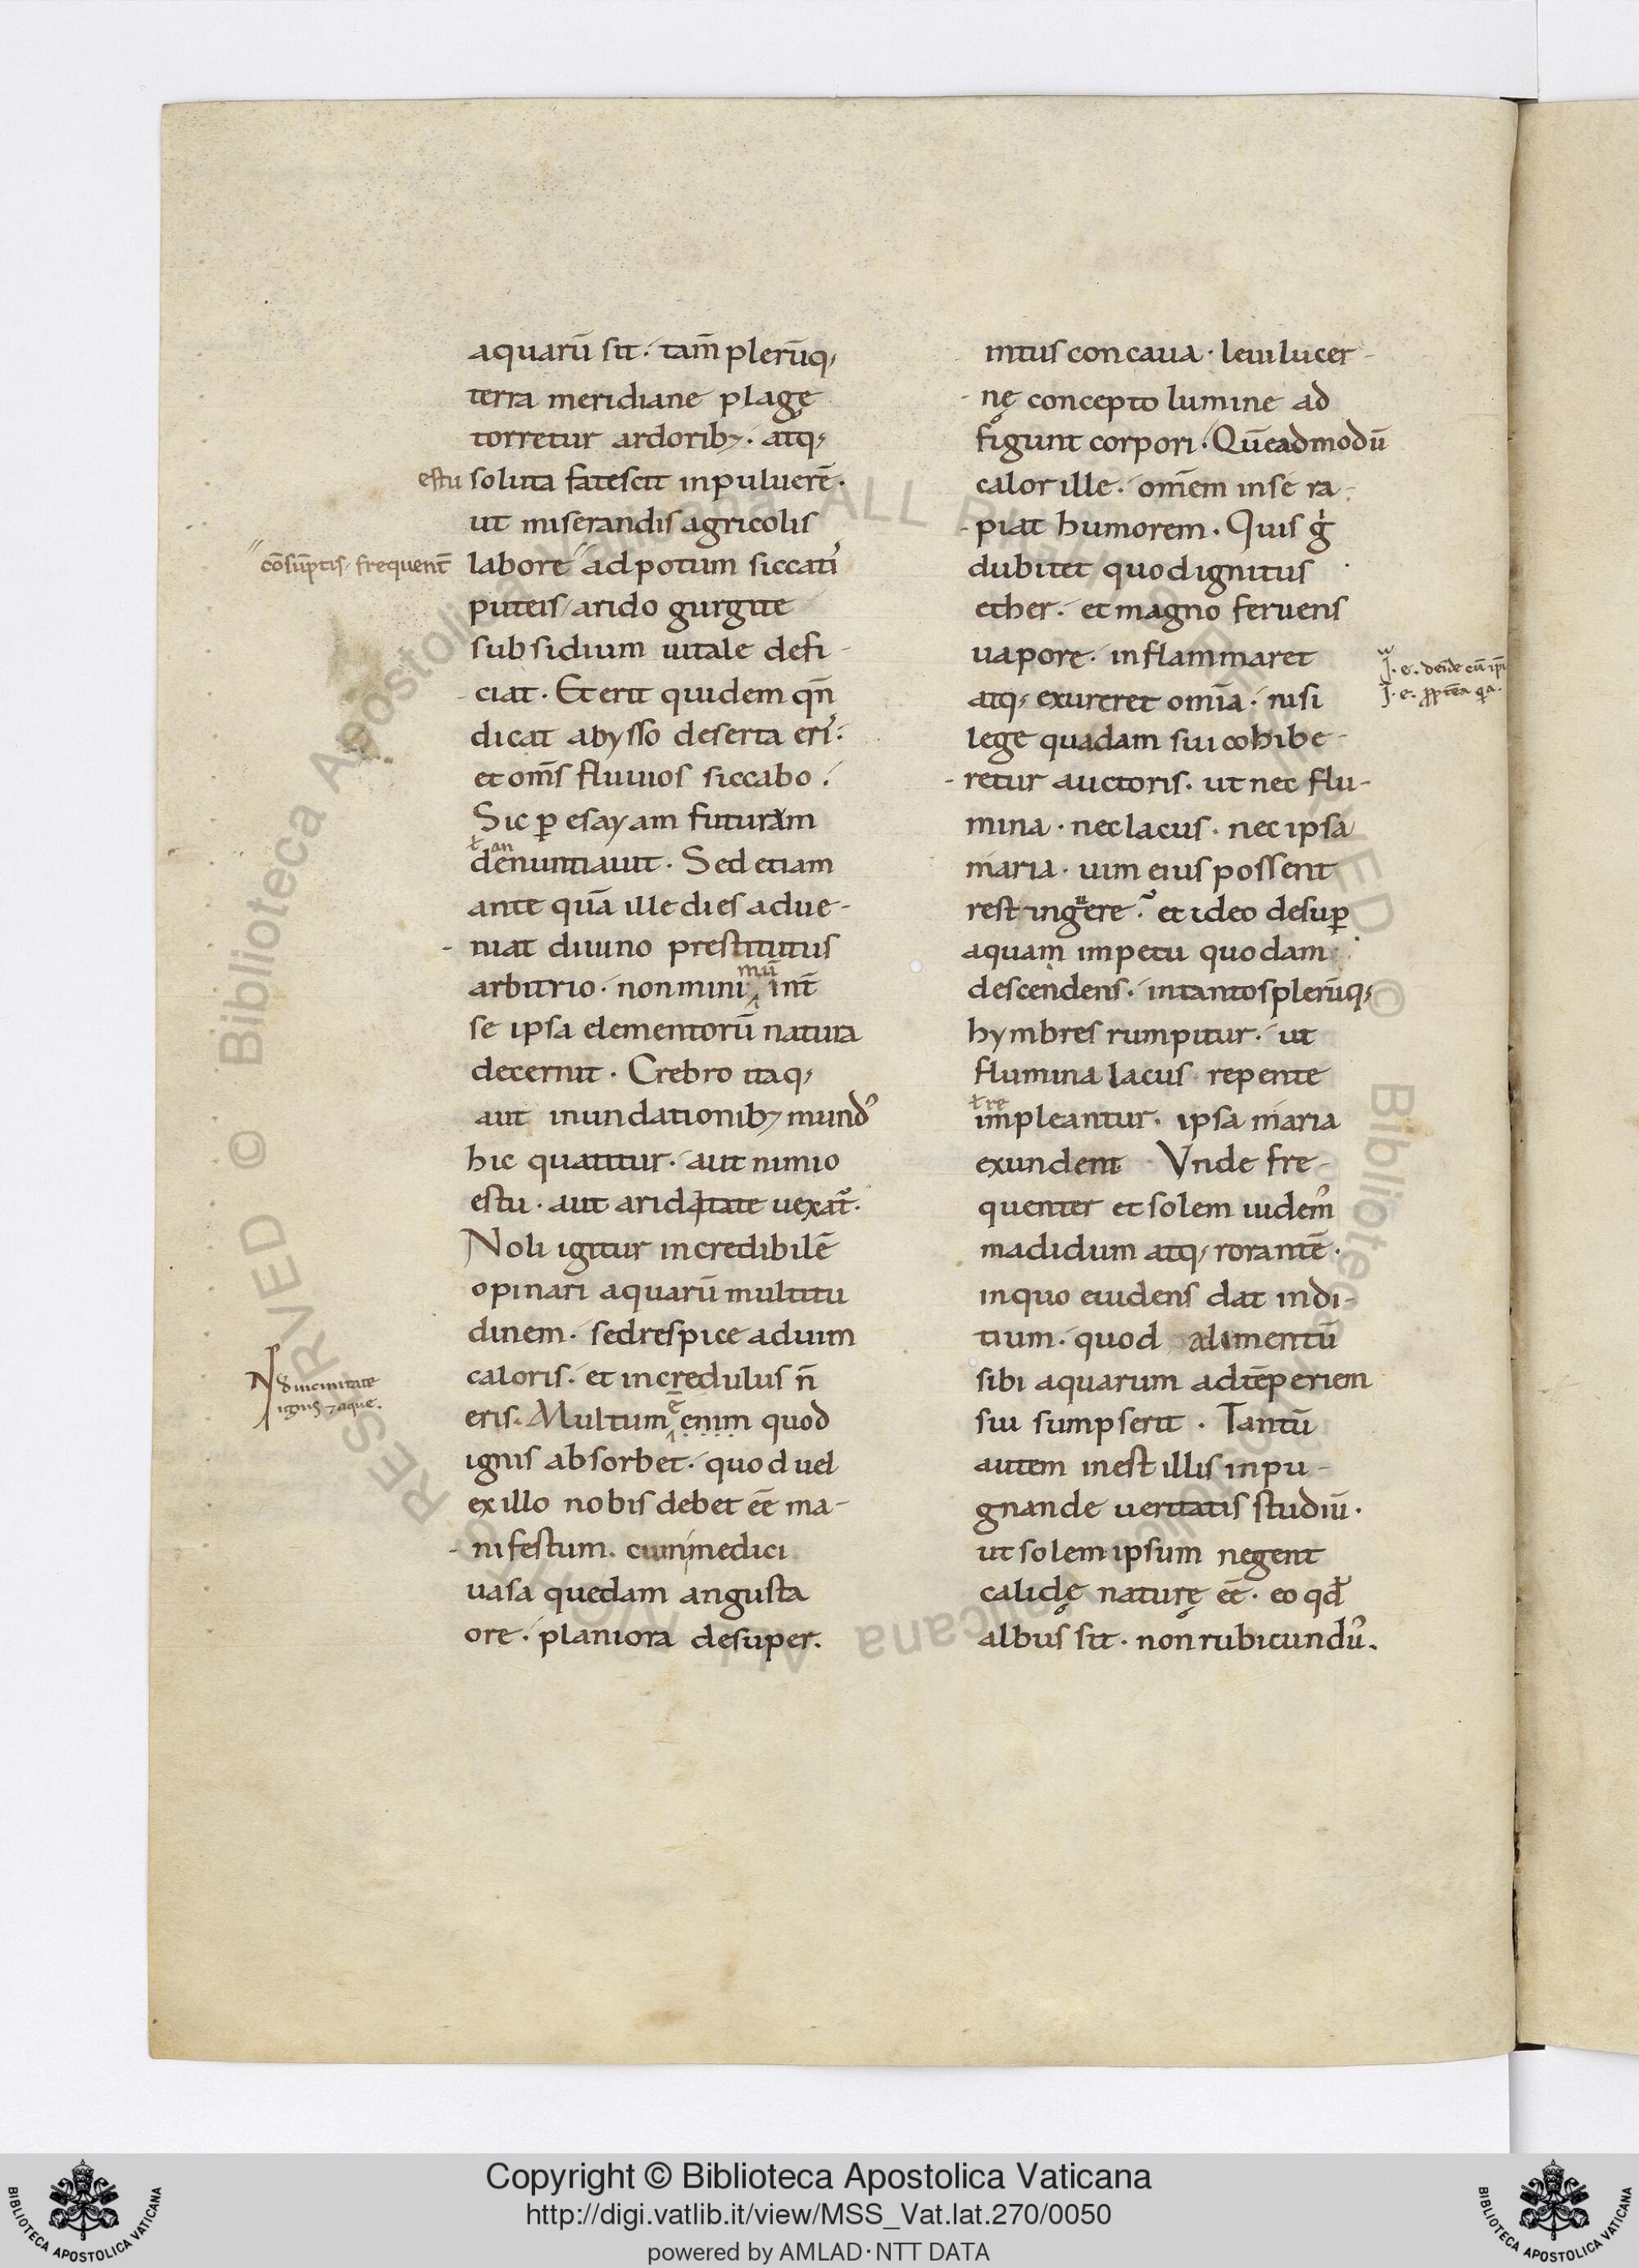 aquarū sit · tam̄ plerūq;
terra meridiane plagę
torretur ardorib; · atq;
estu soluta fatescit inpuluerē ·
ut miserandis agricolis
cōsūptis / frequent̄ labore ad potum siccati
puteis / arido gurgite
subsidium uitale defi-
-ciat · Et erit quidem qn̄
dicat abysso deserta eris ·
et om̄s fluuios siccabo ·
Sic ꝑ esayam futuram
ł an
denuntiauit · Sed etiam
ante quā ille dies adue-
-niat diuino prestitutus
mū
arbitrio · non mini int̄
se ipsa elementorū natura
decernit · Crebro itaq;
aut inundationib; mund᾽
hic quatitur · aut nimio
estu · aut ariditate uexat᷑ ·
Noli igitur incredibilē
opinari aquarū multitu
dinem · sed respice ad uim
caloris · et incredulus n̄
N̄ d uicinitate
ignis ⁊ aque.
ē
eris · Multum enim quod
ignis absorbet · quod uel
ex illo nobis debet ēē ma-
-nifestum · cum medici
uasa quedam angusta
ore · planiora desuper.
intus concaua · leui lucer-
-nę concepto lumine ad
figunt corpori · Quēadmodū
calor ille · om̄em in se ra-
-piat humorem · Quis g̍
dubitet quod ignitus
ether · et magno feruens
uapore · inflammaret
atq; exureret om̄ia · nisi
J · e · deīde cū ip̄i
J · e · ꝓptea qa ·
lege quadam sui cohibe-
-retur auctoris · ut nec flu-
mina · nec lacus · nec ipsa
maria · uim eius possent
restingere · et ideo desuꝑ
aquam impetu quodam
descendens · in tantos plerūq;
hymbres rumpitur · ut
flumina lacus repente
ł re
impleantur · ipsa maria
exundent Vnde fre-
quenter et solem uidem᾽
madidum atq; rorantē ·
in quo euidens dat indi-
tium · quod alimentū
sibi aquarum ad tēperiem
sui sumpserit · Tantū
autem inest illis inpu-
gnande ueritatis studiū ·
ut solem ipsum negent
calidę naturę ēē · eo qđ
albus sit · non rubicund᾽.
Copyright © Biblioteca Apostolica Vaticana
http://digi.vatlib.it/view/MSS_Vat.lat.270/0050
powered by AMLAD·NTT DATA
BIBLIOTECA APOSTOLICA VATICANA
BIBLIOTECA APOSTOLICA VATICANA